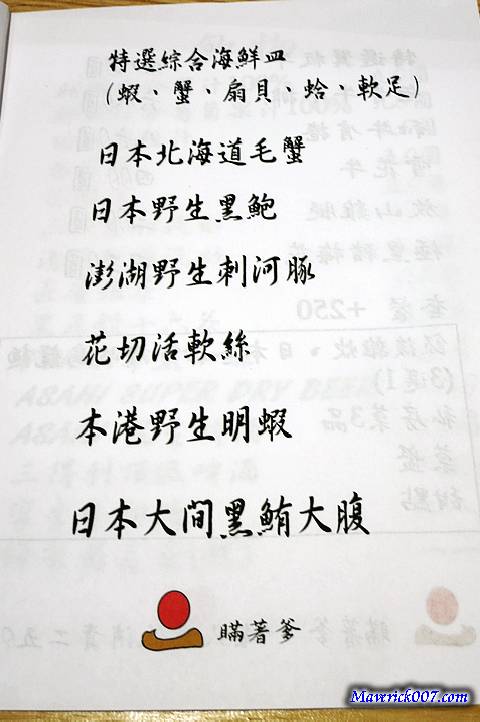 特選綜合海鮮皿
（蝦、蟹、扇貝、蛤、軟足）
日本北海道毛蟹
日本野生黑鮑
澎湖野生刺河豚
花切活軟絲
本港野生明蝦
日本大間黑鮪大腹
瞞著爹
Maverick007.com